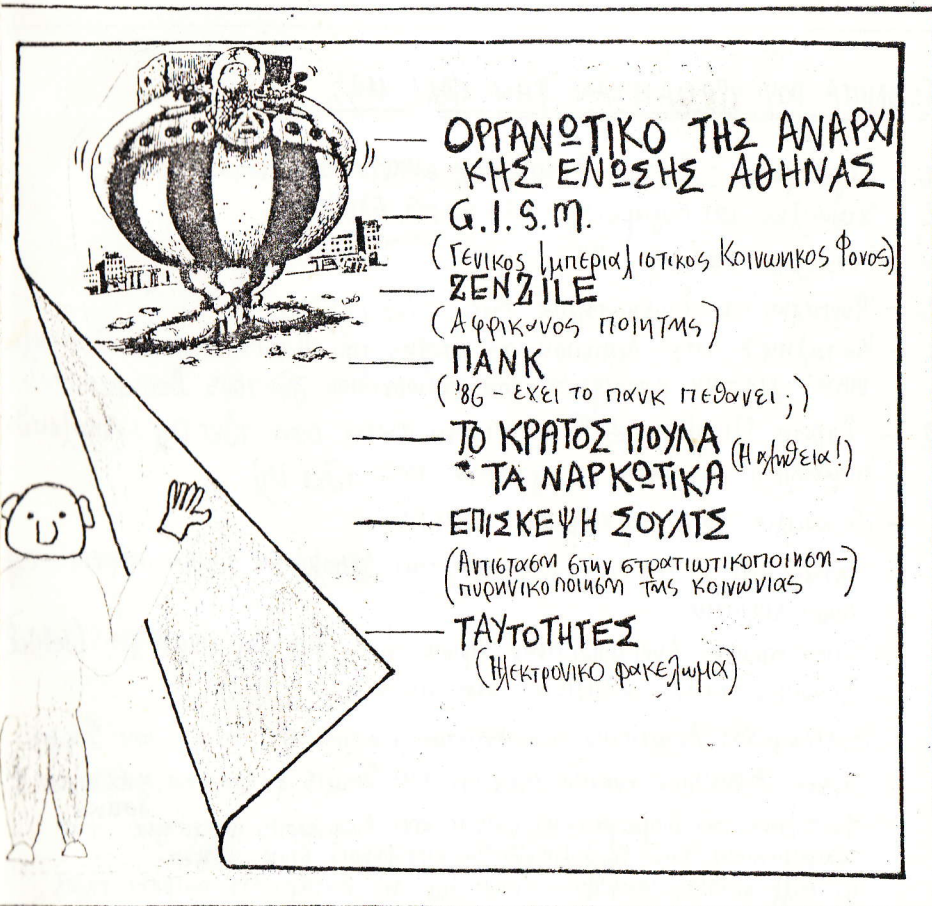 ΟΡΓΑΝΩΤΙΚΟ ΤΗΣ ΑΝΑΡΧΙ
ΚΗΣ ΕΝΩΣΗΣ ΑΘΗΝΑΣ
G.I.S.M.
(Γενικος Ιμπεριαλιστικος Κοινωνικος Φονος)
ZENZILE
(Αφρικανος ποιητης)
ΠΑΝΚ
('86 - εχει το πανκ πεθανει;)
ΤΟ ΚΡΑΤΟΣ ΠΟΥΛΑ
ΤΑ ΝΑΡΚΩΤΙΚΑ (Η αληθεια!)
ΕΠΙΣΚΕΨΗ ΣΟΥΛΤΣ
(Αντισταση στην στρατιωτικοποιηση-
πυρηνικοποιηση της κοινωνιας)
ΤΑΥΤΟΤΗΤΕΣ
(Ηλεκτρονικο φακελωμα)